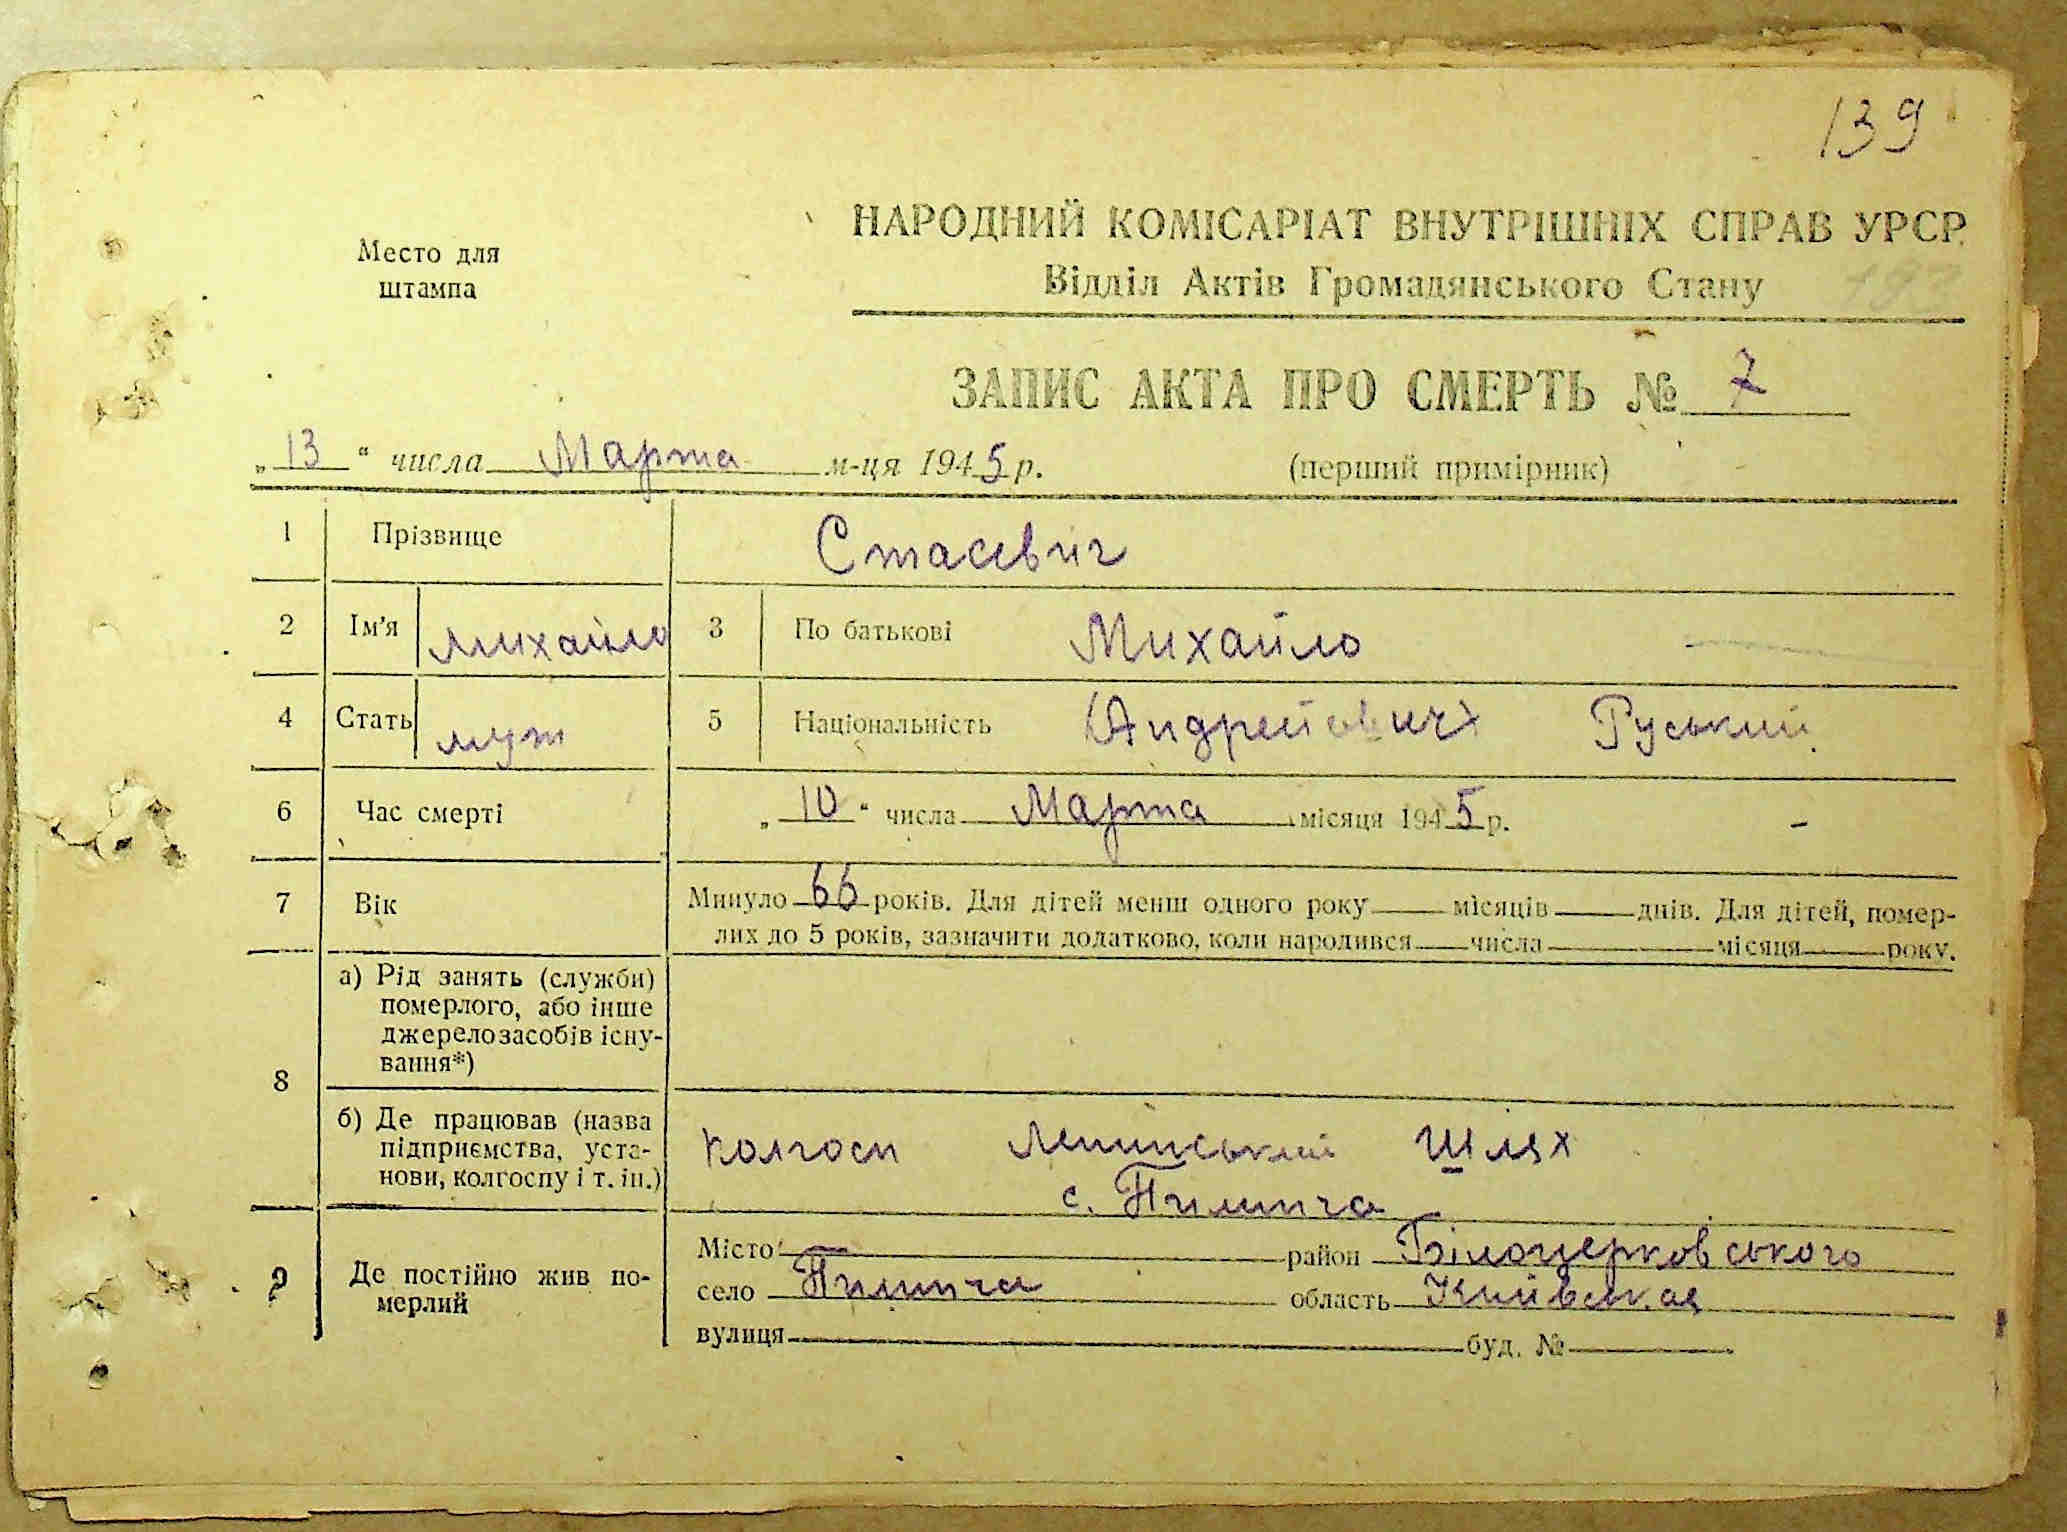 139
Место для
штампа
НАРОДНИЙ КОМІСАРІАТ ВНУТРІШНІХ СПРАВ УРСР
Відділ Актів Громадянського Стану
ЗАПИС АКТА ПРО СМЕРТЬ № 7
„13“ числа Марта м-ця 1945 р. (перший примірник)
1 Прізвище Стасевич
2 Ім'я Михайло 3 По батькові Михайло
4 Стать муж 5 Національність (Андрейович) Руський
6 Час смерті „10“ числа Марта місяця 1945 р.
7 Вік Минуло 66 років. Для дітей менш одного року місяців днів. Для дітей, помер-
лих до 5 років, зазначити додатково, коли народився числа місяця року.
8 а) Рід занять (служби)
померлого, або інше
джерело засобів існу-
вання*)
б) Де працював (назва
підприємства, уста-
нови, колгоспу і т. ін.)
колгосп Ленинський Шлях
с. Пилипча
9 Де постійно жив по-
мерлий
Місто район Білоцерковського
село Пилипча область Київская
вулиця буд. №